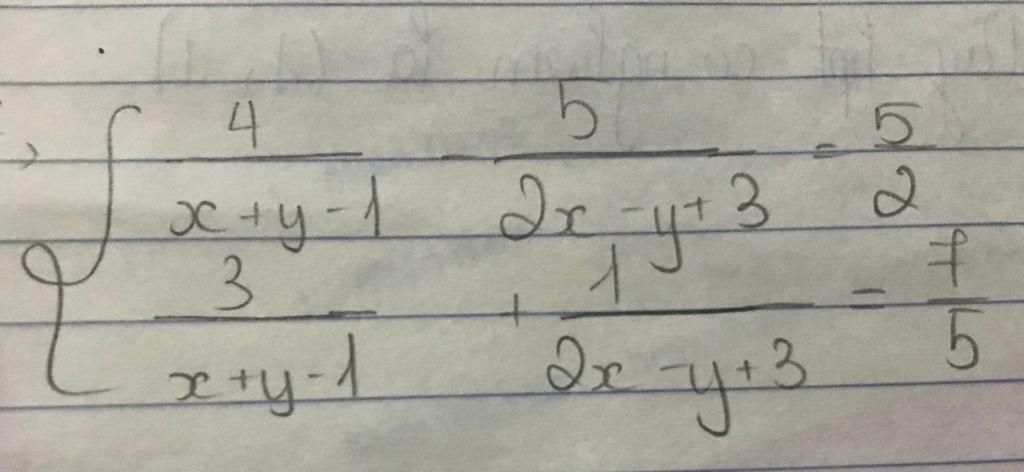 4/(x+y-1) - 5/(2x-y+3) = 5/2
3/(x+y-1) + 1/(2x-y+3) = 7/5